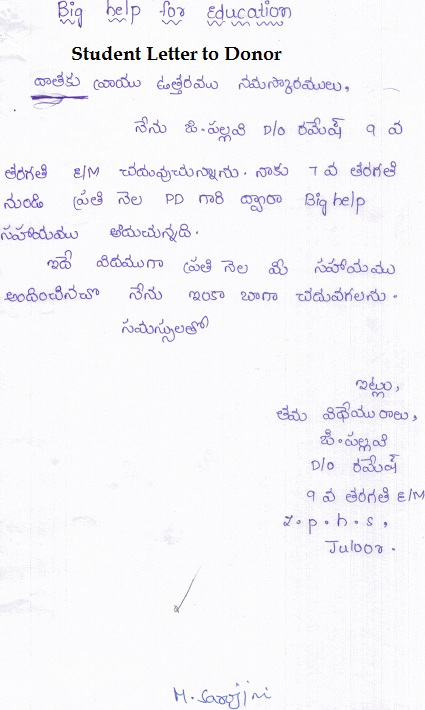 Big help for Education
Student Letter to Donor
దాతకు వ్రాయు ఉత్తరము నమస్కారములు,
నేను జి.పల్లవి D/o రమేష్ 9 వ
తరగతి E/M చదువుచున్నాను. నాకు 7 వ తరగతి
నుండి ప్రతి నెల PD గారి ద్వారా Big help
సహాయము అందుచున్నది.
ఇదే విదముగా ప్రతి నెల మీ సహాయము
అందించినచో నేను ఇంకా బాగా చదువగలను.
సమస్సులతో
ఇట్లు,
తమ విధేయురాలు,
జి.పల్లవి
D/o రమేష్
9 వ తరగతి E/M
Z.p.h.s,
Juloor.
M. Sarojini